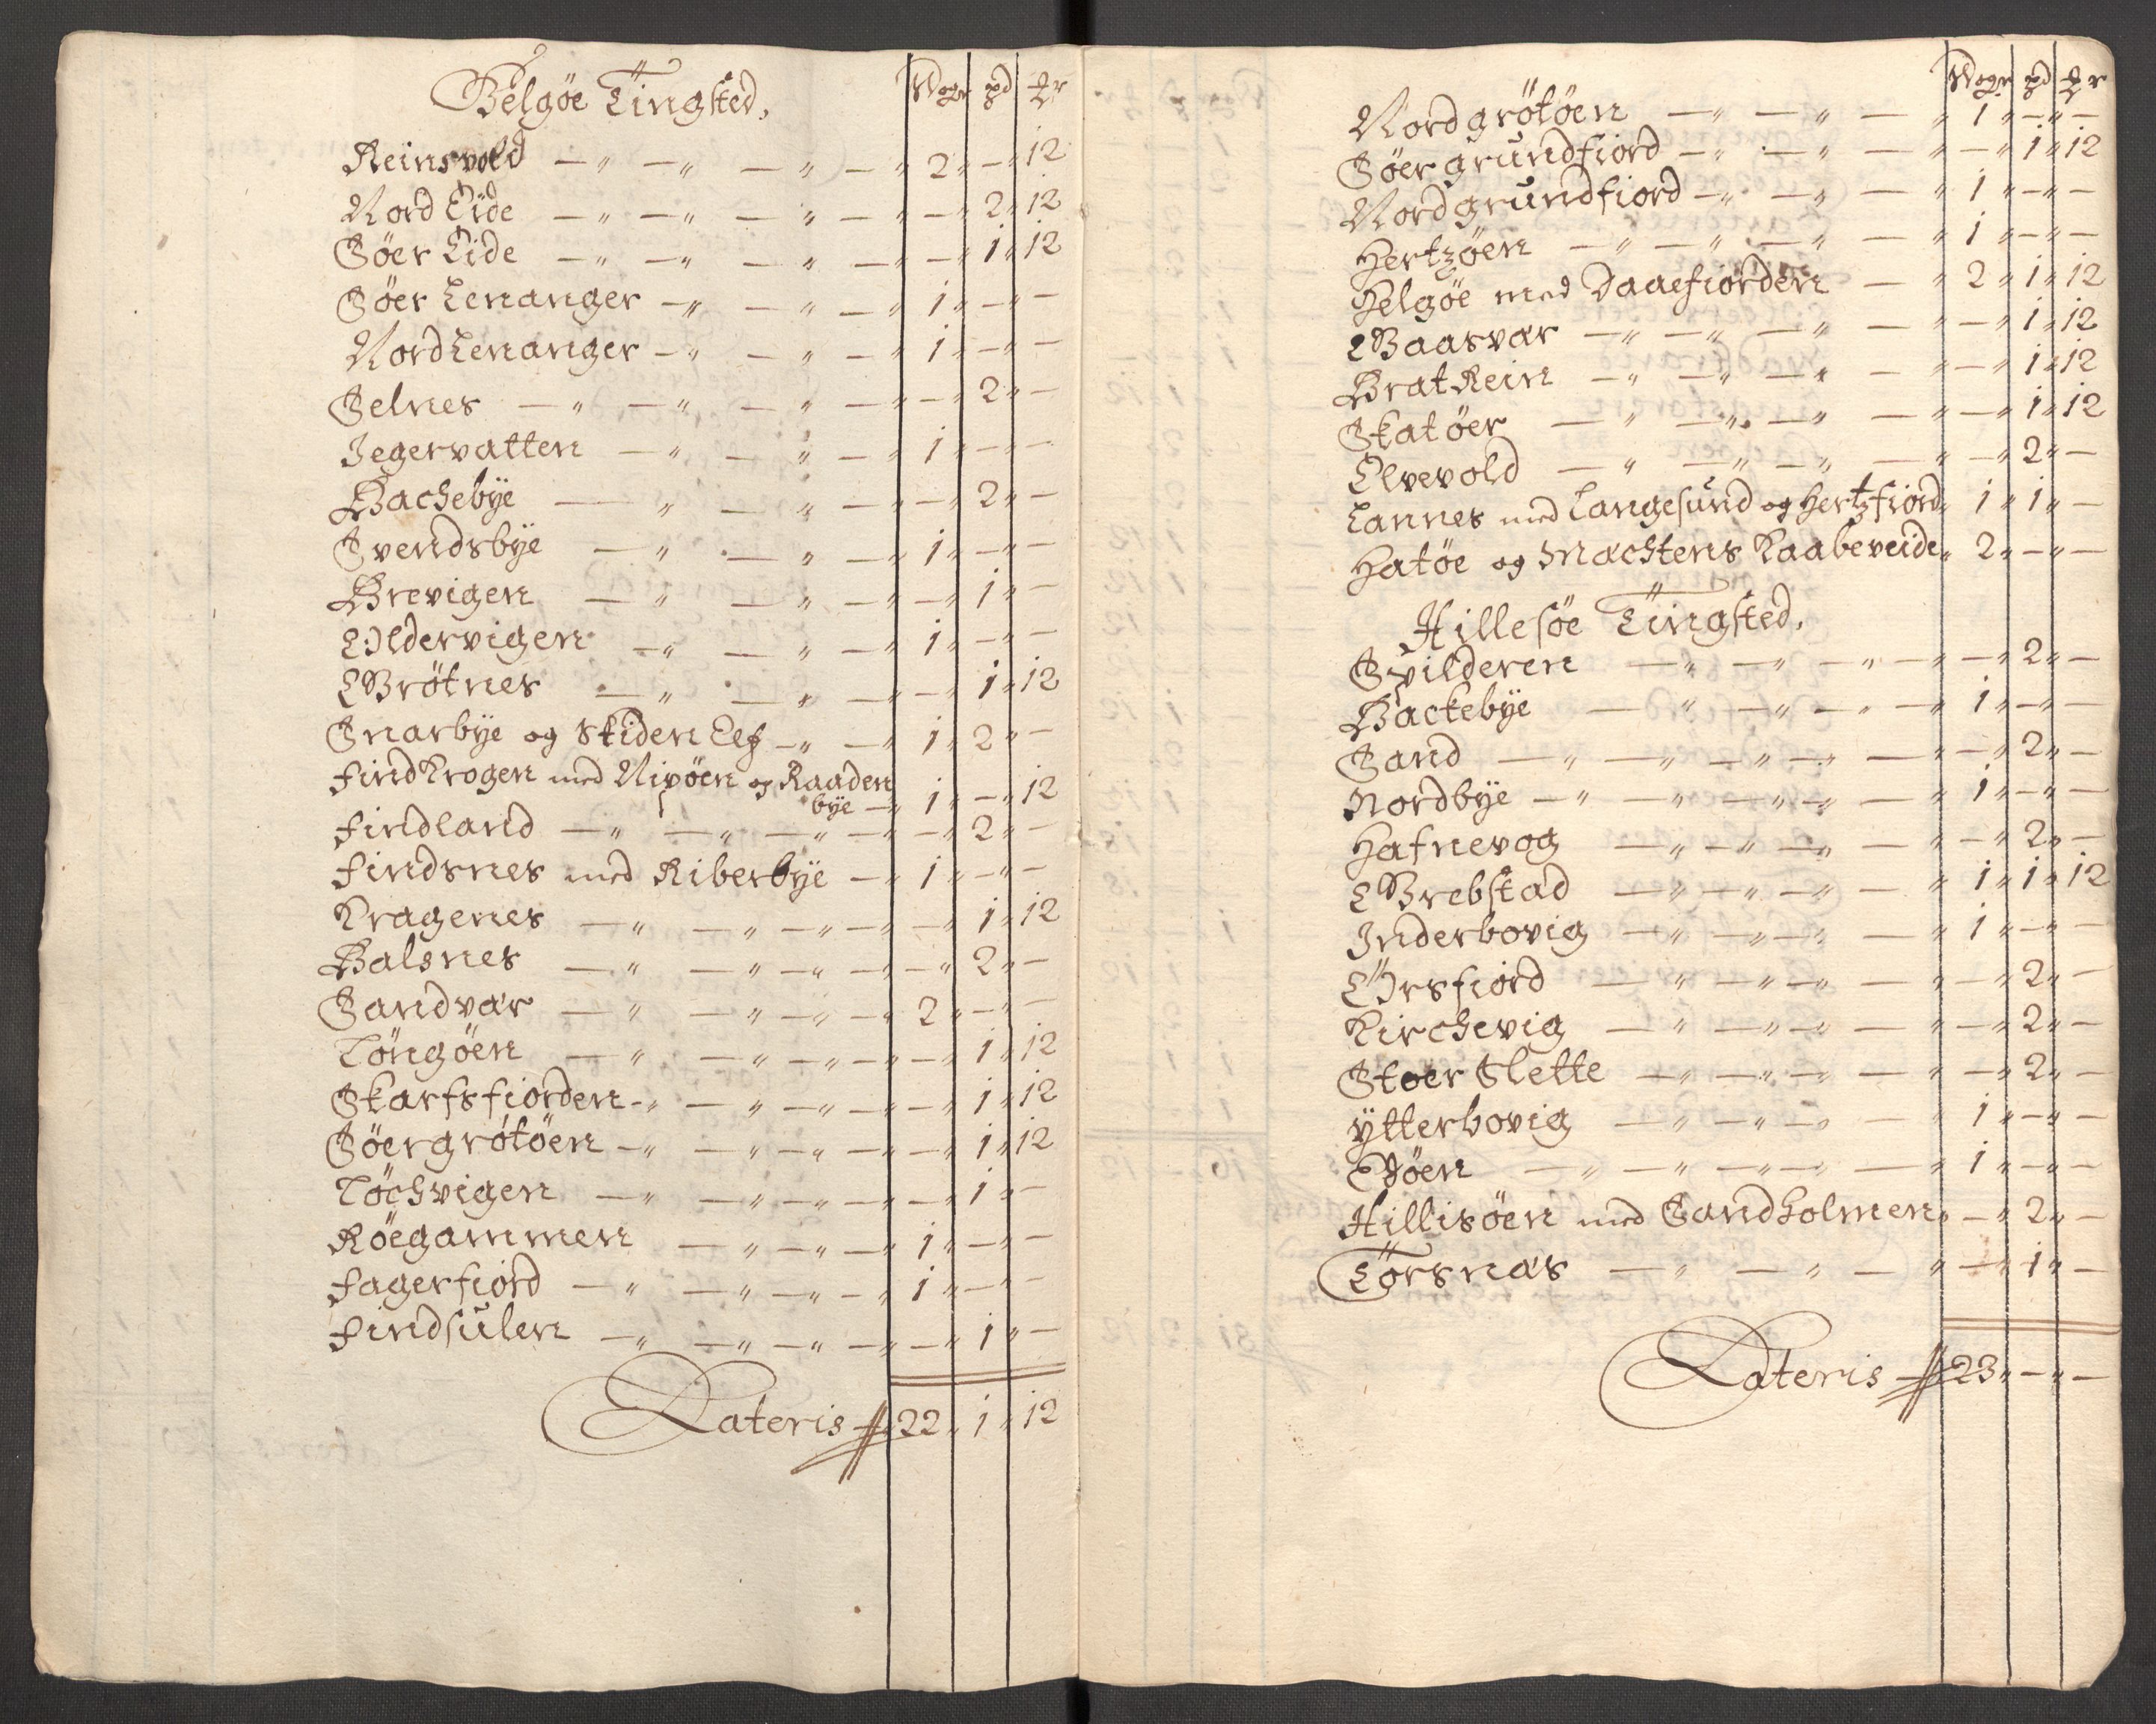 Helgöe Tingsted, Woger pd ℔r
Reinsvold — " — " — " — " 2 " — " 12
Nord Eide — " — " — " — " — " 2 " 12
Söer Eide — " — " — " — " — " 1 " 12
Söer Lenanger — " — " — " 1 " — " —
Nord Lenanger — " — " — " 1 " — " —
Selnes — " — " — " — " — " 2 " —
Jegervatten — " — " — " 1 " — " —
Bachebÿe — " — " — " — " 2 " —
Svendsbÿe — " — " — " 1 " — " —
Brevigen — " — " — " — " 1 " —
Oldervigen — " — " — " 1 " — " —
Brötnes — " — " — " — " 1 " 12
Snarbÿe og Skiden Elf — " — " 1 " 2 " —
Find Krogen med Nipöen og Raaden
bÿe — " 1 " — " 12
Findland — " — " — " — " — " 2 " —
Findsnes med Riberbÿe — " 1 " — " —
Kragenes — " — " — " — " — " 1 " 12
Balsnes — " — " — " — " — " 2 " —
Sandvær — " — " — " — " 2 " — " —
Töngöen — " — " — " — " — " 1 " 12
Skarfsfiorden — " — " — " — " — " 1 " 12
Söergrötöen — " — " — " — " — " 1 " 12
Töchvigen — " — " — " — " — " 1 " —
Röegammen — " — " — " 1 " — " —
Fagerfiord — " — " — " — " 1 " — " —
Findsulen — " — " — " — " — " 1 " —
Lateris 22 " 1 " 12
Woger pd ℔r
Nordgrötöen — " — " — " 1 " — " —
Söergrundfiord — " — " — " — " 1 " 12
Nordgrundfiord — " — " — " 1 " — " —
Hertzöen — " — " — " — " 1 " — " —
Helgöe med Daaefiorden — " 2 " 1 " 12
Baasvær — " — " — " — " — " 1 " 12
Brat Rein — " — " — " — " — " 1 " 12
Skatöer — " — " — " — " — " 1 " 12
Elvevold — " — " — " — " — " 2 " —
Lannes med Langesund og Hertzfiord " 1 " 1 " —
Hatöe og Machtens Kaabeveide " 2 " — " —
Hillesöe Tingsted,
Spilderen — " — " — " — " — " 2 " —
Backebÿe — " — " — " — " 1 " — " —
Sand — " — " — " — " — " — " 2 " —
Nordbÿe — " — " — " — " 1 " — " —
Hafnevog — " — " — " — " — " 2 " —
Brebstad — " — " — " — " 1 " 1 " 12
Inderbovig — " — " — " — " 1 " — " —
Örsfiord — " — " — " — " — " 2 " —
Kirchevig — " — " — " — " — " 2 " —
Stoer Slette — " — " — " — " — " 2 " —
Ytterbovig — " — " — " — " 1 " — " —
Edöen — " — " — " — " 1 " — " —
Hillisöen med Sandholmen " — " 2 " —
Törsnæs — " — " — " — " 1 " —
Lateris 23 " — " —